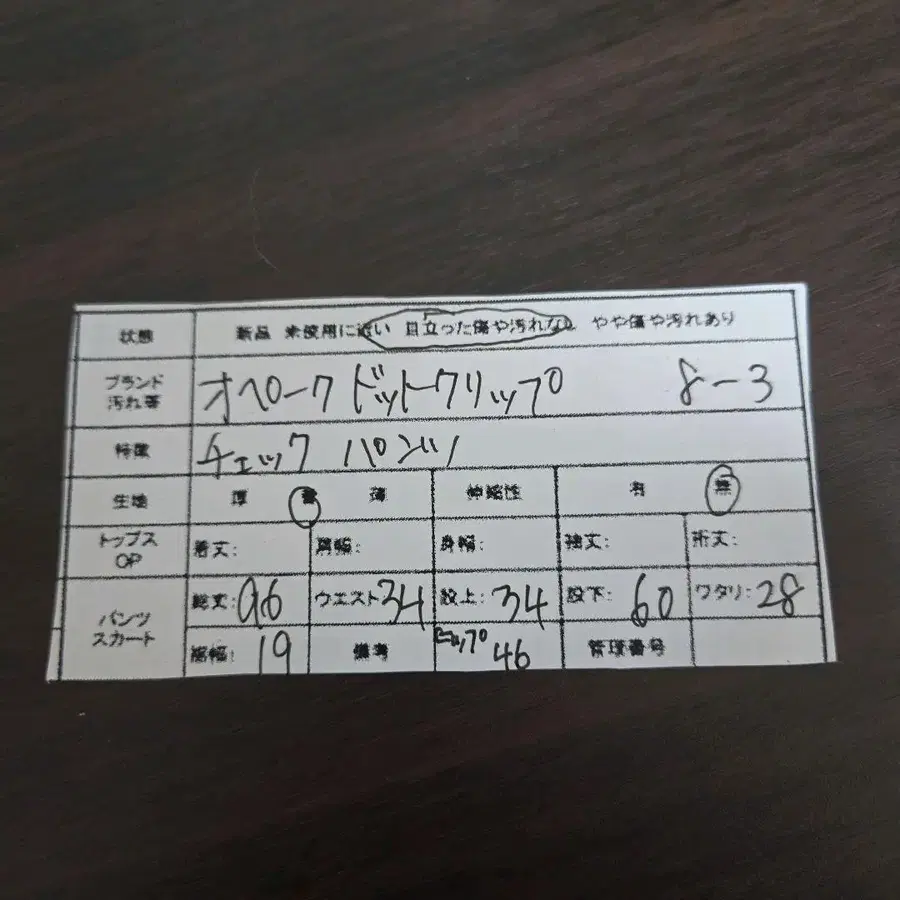 状態 新品 未使用に近い 目立った傷や汚れなし やや傷や汚れあり
ブランド 汚れ等 オペーク ドットクリップ 8-3
特徴 チェック パンツ
生地 厚 普 薄 伸縮性 有 無
トップス OP 着丈: 肩幅: 身幅: 袖丈: 裄丈:
パンツ スカート 総丈:96 ウエスト34 股上:34 股下:60 ワタリ:28
裾幅:19 備考 ヒップ46 管理番号